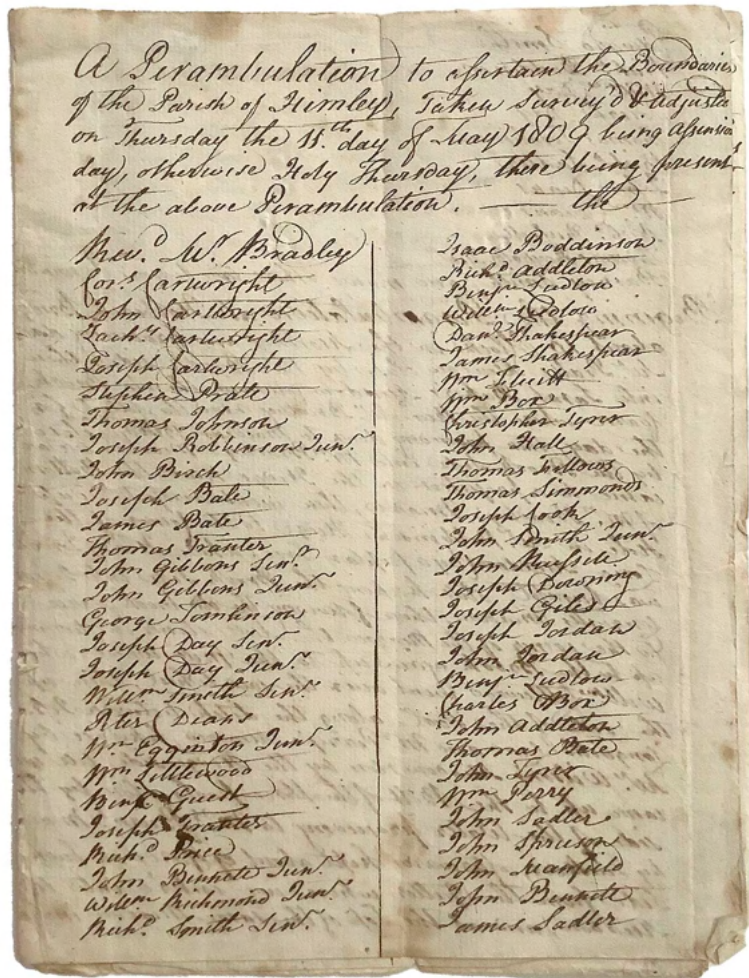 A Perambulation to assertain the Boundaries
of the Parish of Himley, Taken Survey'd & adjusted
on Thursday the 11.th day of May 1809 being assension
day), otherwise Holy Thursday, there being present
at the above Perambulation. — the —
Rev.d Mr. Bradley
Cor.s Cartwright
John Cartwright
Zach.y Cartwright
Joseph Cartwright
Stephen Prate
Thomas Johnson
Joseph Robbinson Jun.r
John Birch
Joseph Bate
James Bate
Thomas Tranter
John Gibbons Sen.r
John Gibbons Jun.r
George Tomlinson
Joseph Day Sen.r
Joseph Day Jun.r
Will.m Smith Sen.r
Peter Deans
Wm Egginton Jun.r
Wm Littlewood
Benj. Guest
Joseph Tranter
Rich.d Price
John Bennett Jun.r
Will.m Richmond Jun.r
Rich.d Smith Sen.r
Isaac Boddinson
Rich.d Addleton
Benj.n Ludlow
Will.m Ludlow
Dan.l Shakespear
James Shakespear
Wm
Wm Box
Christopher Tyrer
John Hall
Thomas Fellows
Thomas Simmonds
Joseph Cook
John Smith Jun.r
John Russell
Joseph Downing
Joseph Giles
Joseph Jordan
John Jordan
Benj.n Ludlow
Charles Box
John Addleton
Thomas Bate
John Tyrer
Wm Perry
John Sadler
John Spruson
John Manfield
John Bennett
James Sadler